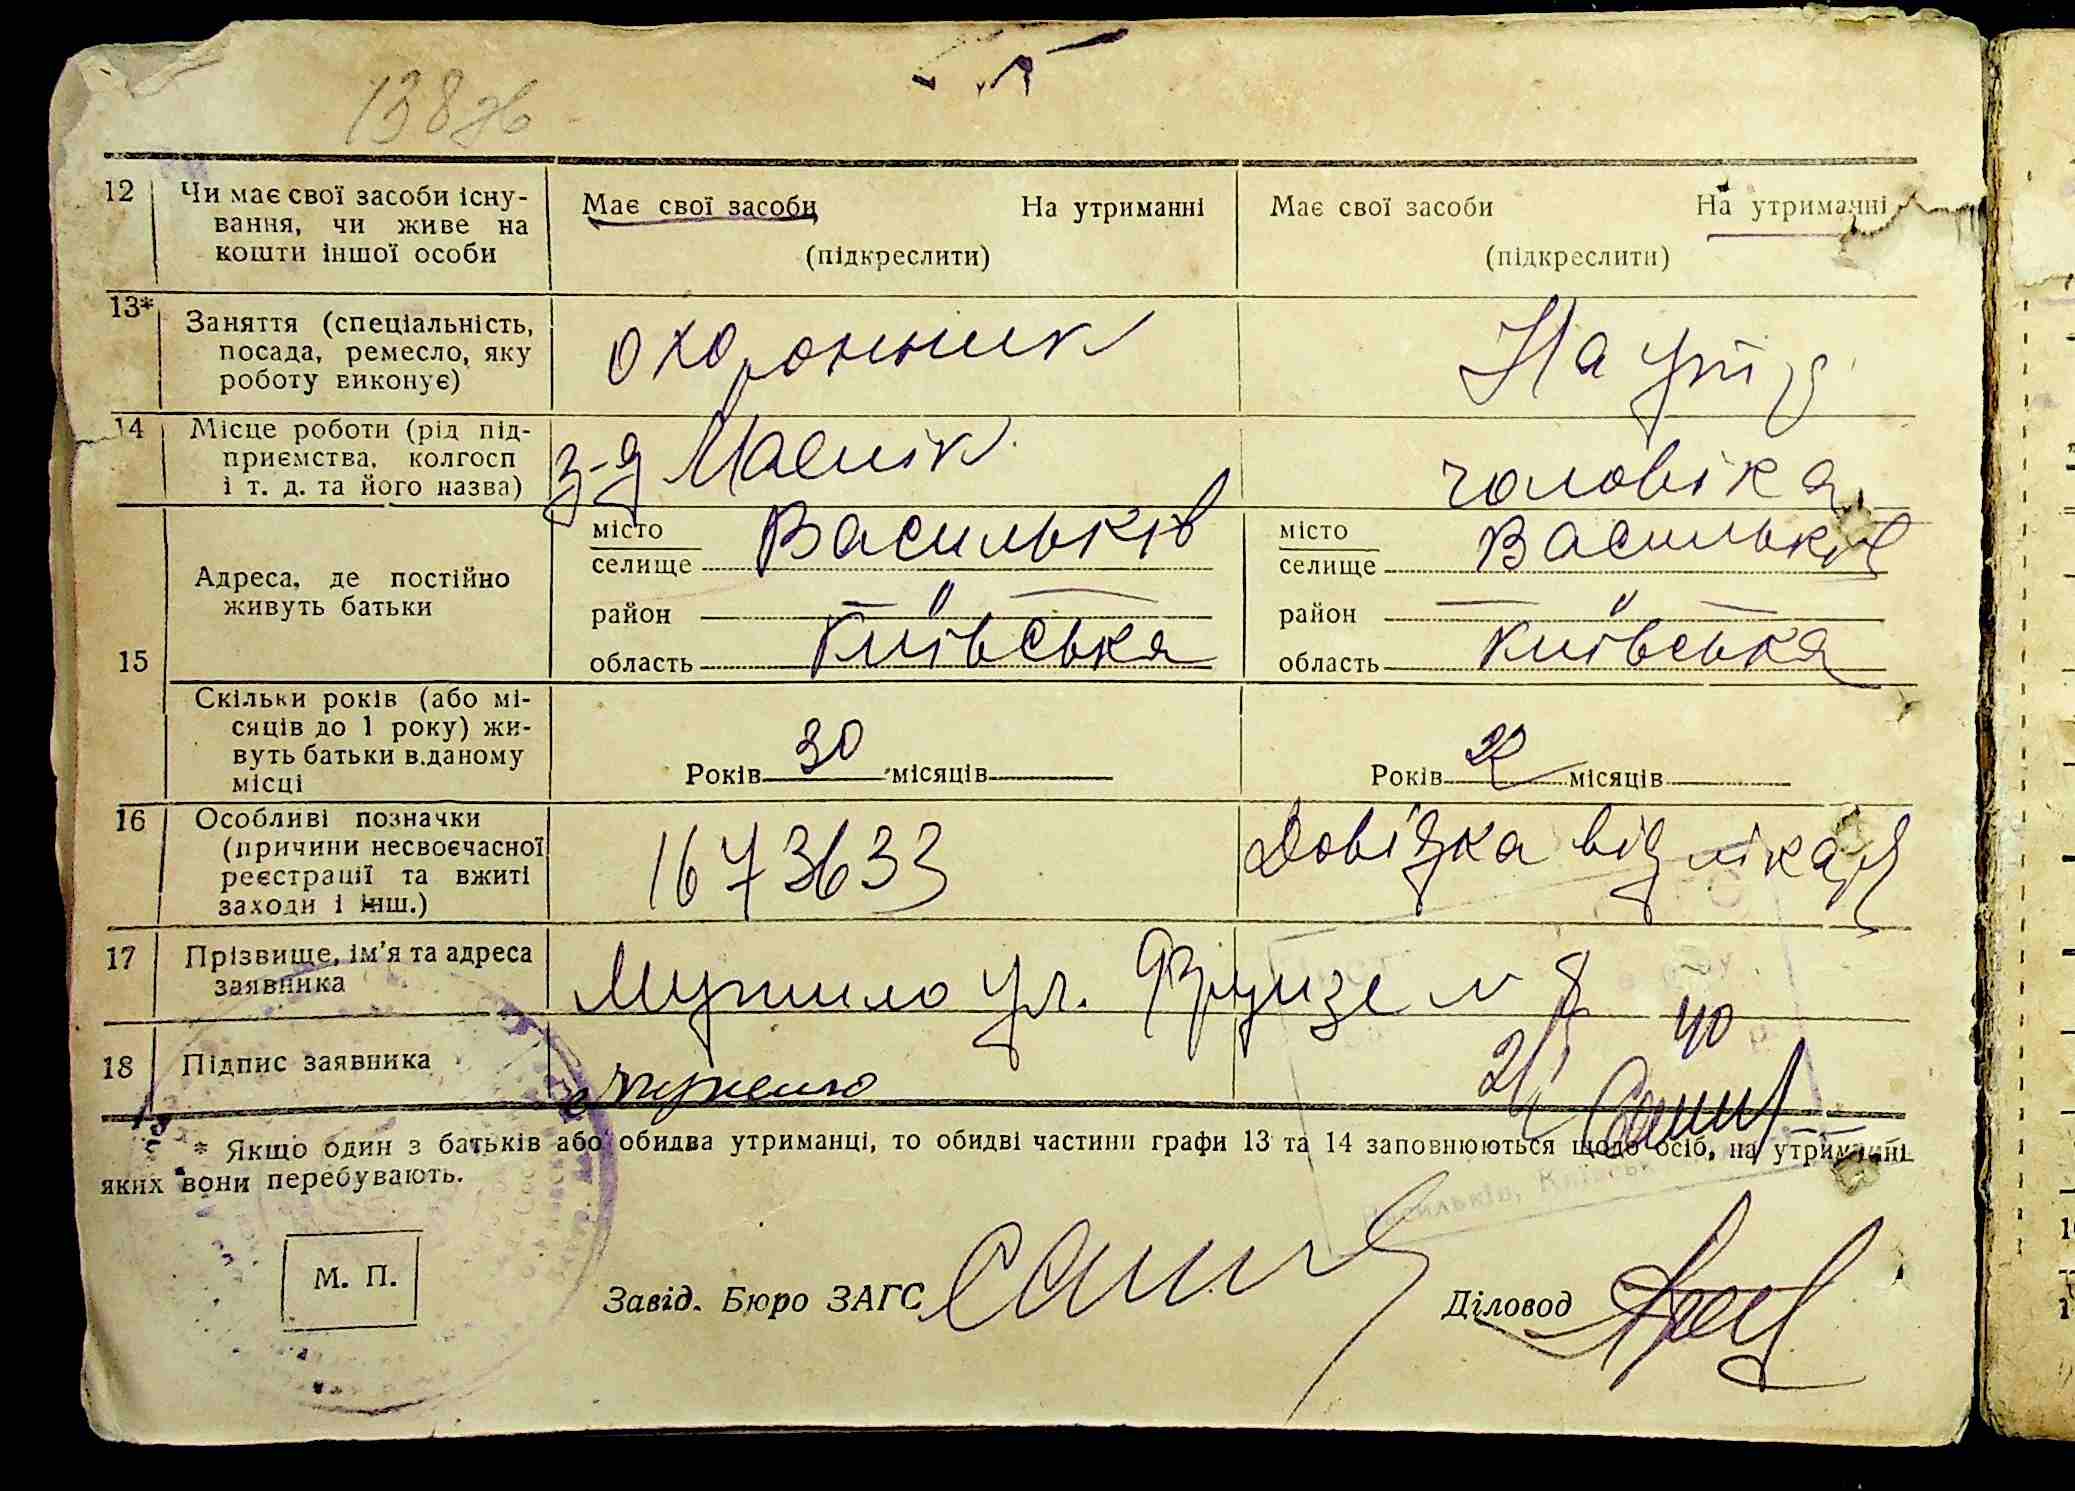 138
12 Чи має свої засоби існу-
вання, чи живе на
кошти іншої особи
Має свої засоби На утриманні
(підкреслити)
Має свої засоби На утриманні
(підкреслити)
13* Заняття (спеціальність,
посада, ремесло, яку
роботу виконує)
охоронник
На утр
14 Місце роботи (рід під-
приємства, колгосп
і т. д. та його назва)
з-д
чоловіка
15 Адреса, де постійно
живуть батьки
місто
селище Васильків
район "
область Київська
місто
селище Васильків
район "
область Київська
Скільки років (або мі-
сяців до 1 року) жи-
вуть батьки в даному
місці
Років 30 місяців
Років місяців
16 Особливі позначки
(причини несвоєчасної
реєстрації та вжиті
заходи і інш.)
1673633
Довідка від лікаря
17 Прізвище, ім'я та адреса
заявника
ул. Фрунзе № 8
40
18 Підпис заявника
* Якщо один з батьків або обидва утриманці, то обидві частини графи 13 та 14 заповнюються щодо осіб, на утриманні
яких вони перебувають.
Васильків, Київськ
М. П.
Завід. Бюро ЗАГС
Діловод